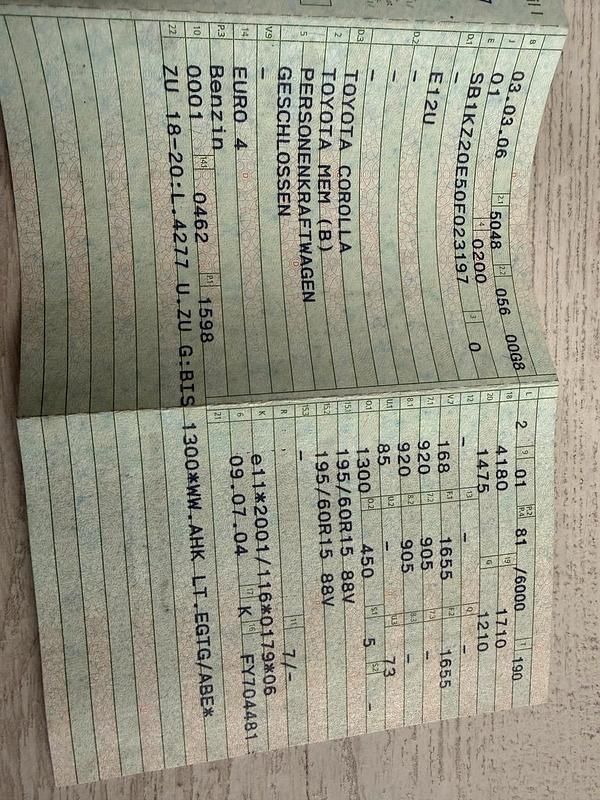 B 03.03.06 2.1 5048 2.2 056 00G8
J 01 4 0200 3 0
E SB1KZ20E50F023197
D.1 -
E12U
D.2 -
-
-
D.3 TOYOTA COROLLA
2 TOYOTA MEM (B)
5 PERSONENKRAFTWAGEN
GESCHLOSSEN
V.9 -
14 EURO 4
P.3 Benzin
10 0001 14.1 0462 P.1 1598
22 ZU 18-20:L.4277 U.ZU G:BIS 1300*WW.AHK LT.EGTG/ABE*
L 2 9 01 P.2 P.4 81 /6000 T 190
18 4180 19 1710
20 1475 G 1210
12 - 13 - Q -
V.7 168 F.1 1655 F.2 1655
7.1 920 7.2 905 7.3 -
8.1 920 8.2 905 8.3 -
U.1 85 U.2 - U.3 73
O.1 1300 O.2 450 S.1 5 S.2 -
15.1 195/60R15 88V
15.2 195/60R15 88V
15.3 -
R 11 7/-
K e11*2001/116*0179*06
6 09.07.04 17 K 16 FY704481
21